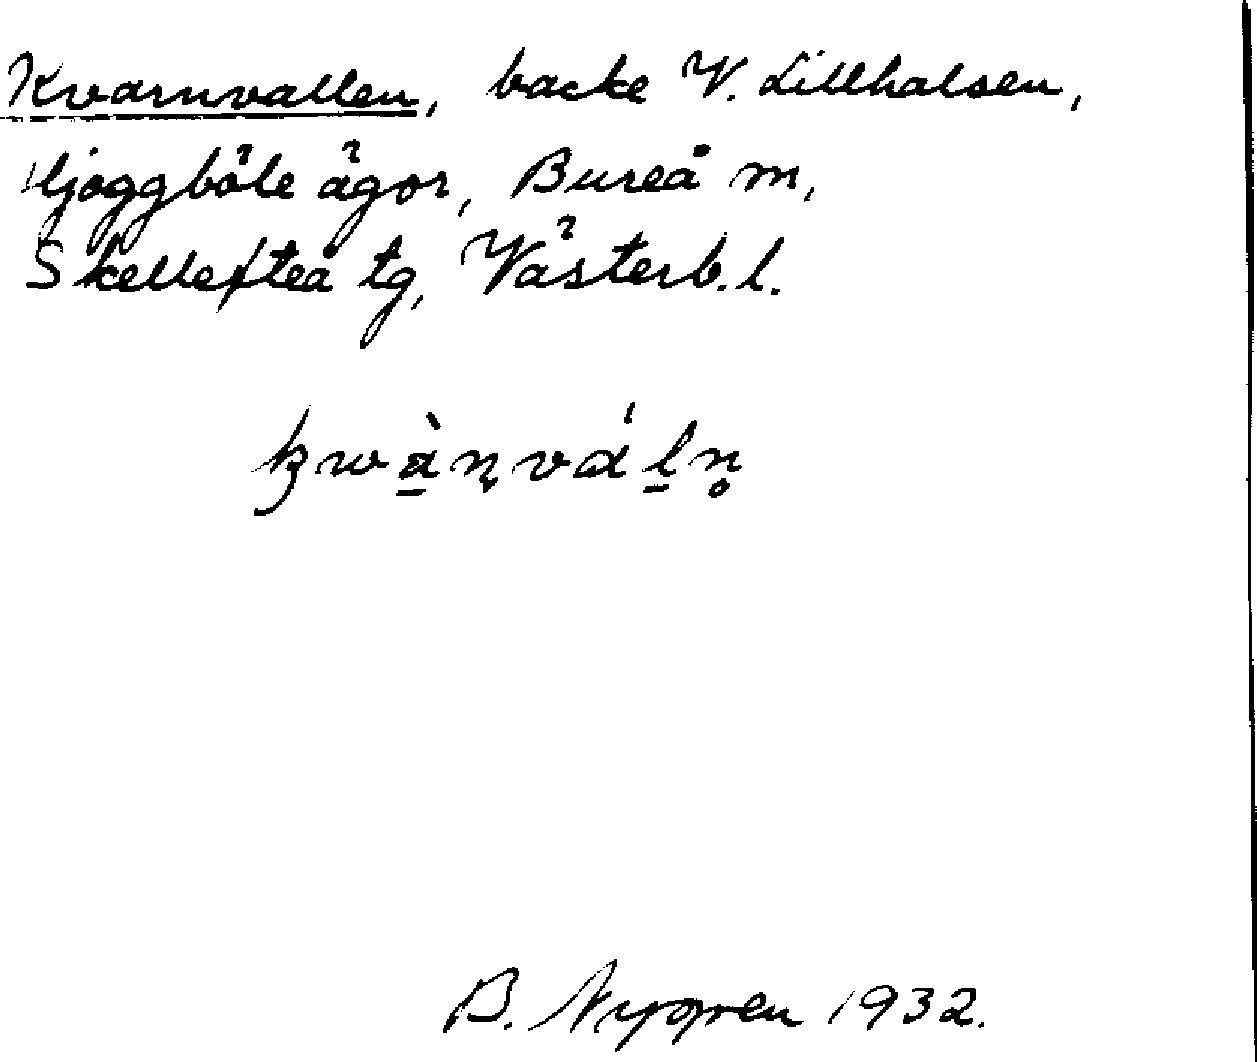 Kvarnvallen, backe V. Lillhalsen,
Hjoggböle ägor, Bureå m,
Skellefteå tg, Västerb. l.
kwà̠ṇvál̠n̥
B. Nygren 1932.